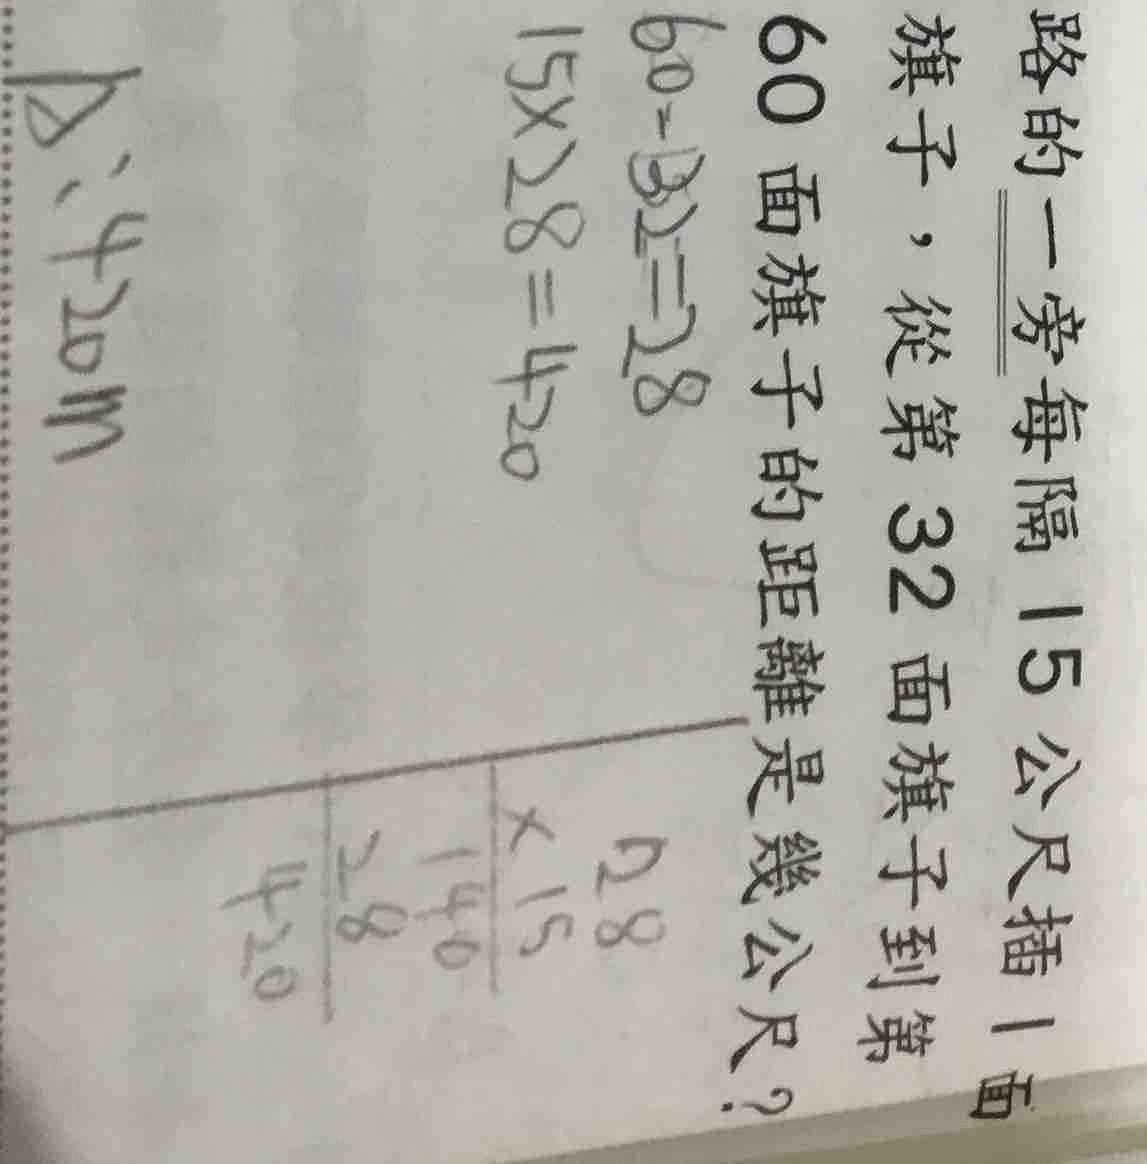 路的一旁每隔 15 公尺插 1 面
旗子，從第 32 面旗子到第
60 面旗子的距離是幾公尺？
60-32=28
15×28=420
28
×15
140
28
420
A:420m